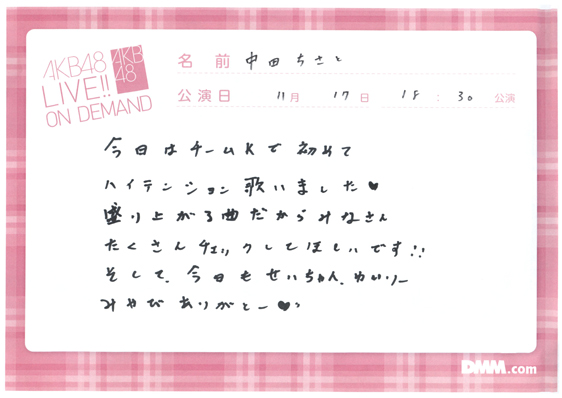 AKB48
LIVE!!
ON DEMAND
AKB
48
名前 中田ちさと
公演日 11月 17日 18:30 公演
今日はチームKで初めて
ハイテンション歌いました♥
盛り上がる曲だからみなさん
たくさんチェックしてほしいです!!
そして、今日もせいちゃん、めいりー
みやび ありがとー♥
DMM.com